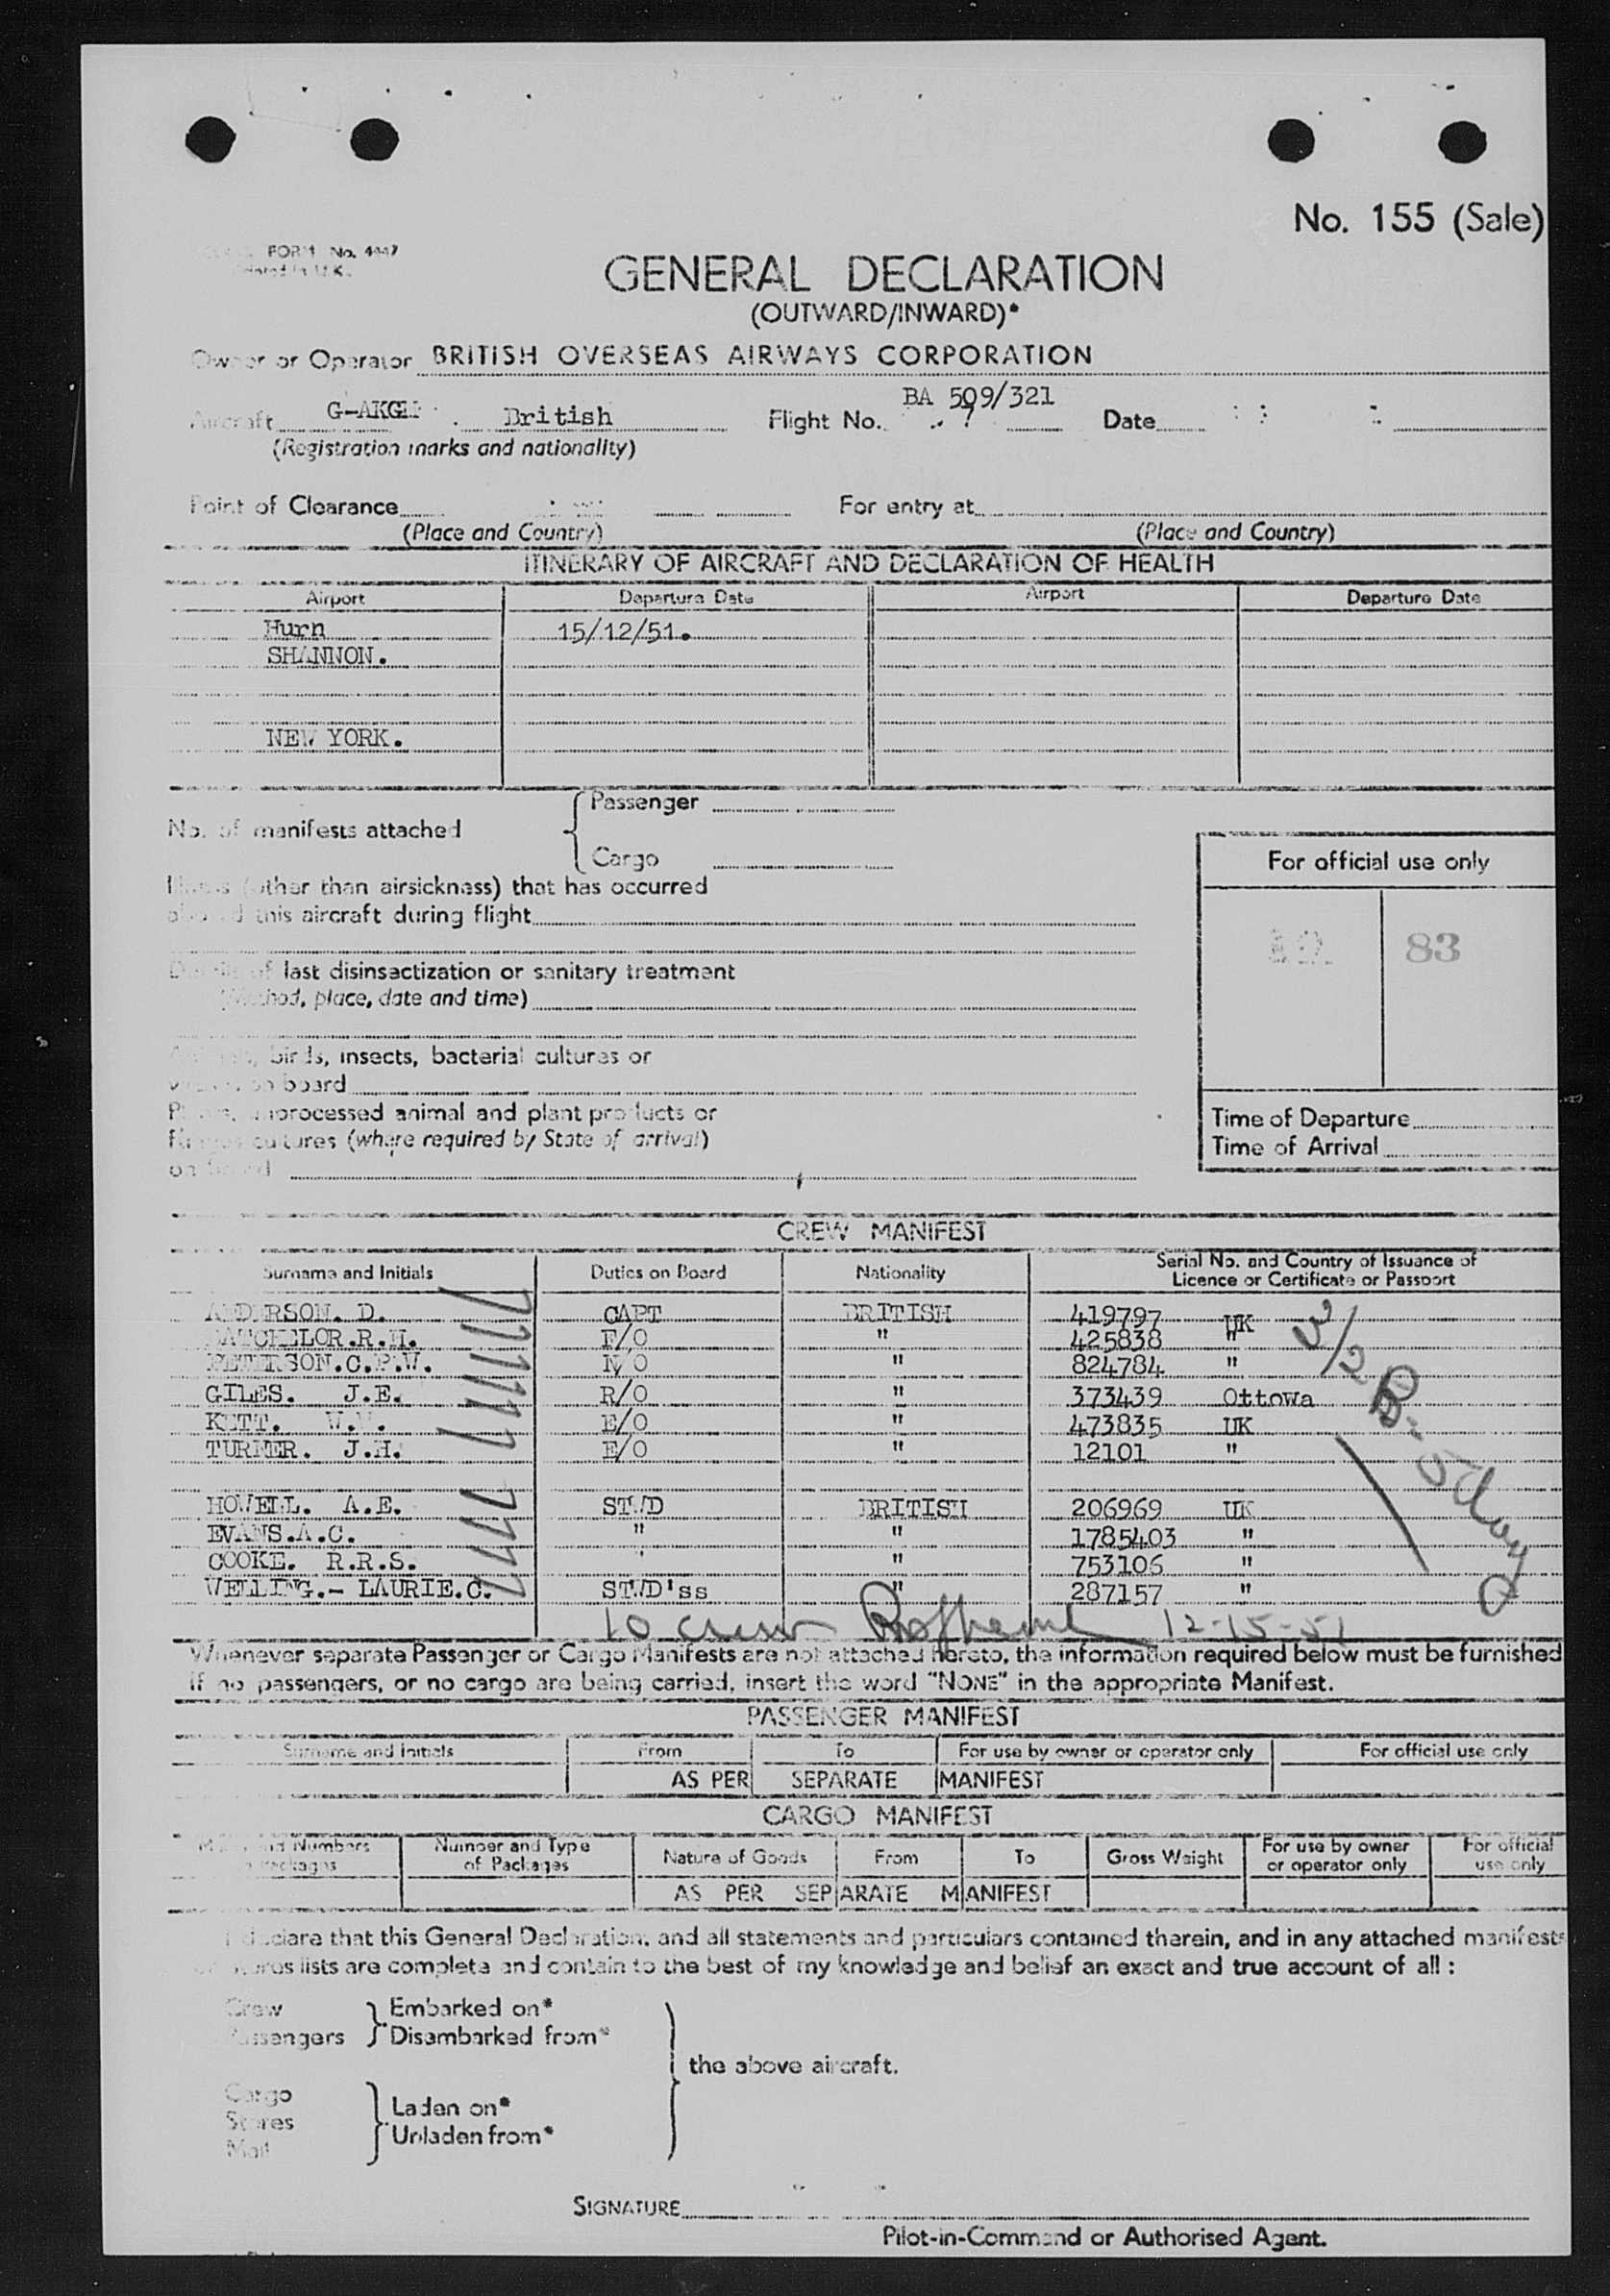 No. 155 (Sale)
FORM No. 4447
GENERAL DECLARATION
(OUTWARD/INWARD)*
Owner or Operator BRITISH OVERSEAS AIRWAYS CORPORATION
Aircraft British Flight No. BA 509/321 Date
(Registration marks and nationality)
Point of Clearance For entry at
(Place and Country) (Place and Country)
ITINERARY OF AIRCRAFT AND DECLARATION OF HEALTH
Airport Departure Date Airport Departure Date
Hurn 15/12/51.
SHANNON.
NEW YORK.
No. of manifests attached { Passenger
Cargo
Illness (other than airsickness) that has occurred
aboard this aircraft during flight
Details of last disinsectization or sanitary treatment
(Method, place, date and time)
birds, insects, bacterial cultures or
on board
unprocessed animal and plant products or
cultures (where required by State of arrival)
on board
For official use only
83
Time of Departure
Time of Arrival
CREW MANIFEST
Surname and Initials Duties on Board Nationality Serial No. and Country of Issuance of
Licence or Certificate or Passport
ANDERSON. D. CAPT BRITISH 419797 UK
BATCHELOR.R.H. F/O " 425838 "
PETERSON.C.P.W. N/O " 824784 "
GILES. J.E. R/O " 373439 Ottowa
KETT. E/O " 473835 UK
TURNER. J.H. E/O " 12101 "
HOWELL. A.E. STWD BRITISH 206969 UK
EVANS.A.C. " " 1785403 "
COOKE. R.R.S. ' " 753106 "
WELLING.- LAURIE.C. STWD'ss " 287157 "
10 crew 12-15-51
Whenever separate Passenger or Cargo Manifests are not attached hereto, the information required below must be furnished
If no passengers, or no cargo are being carried, insert the word "NONE" in the appropriate Manifest.
PASSENGER MANIFEST
Surname and Initials From To For use by owner or operator only For official use only
AS PER SEPARATE MANIFEST
CARGO MANIFEST
Marks and Numbers Number and Type Nature of Goods From To Gross Weight For use by owner For official
Packages of Packages or operator only use only
AS PER SEPARATE MANIFEST
I declare that this General Declaration, and all statements and particulars contained therein, and in any attached manifests
lists are complete and contain to the best of my knowledge and belief an exact and true account of all :
Crew } Embarked on*
Passengers Disembarked from*
the above aircraft.
Cargo
Stores } Laden on*
Mail Unladen from*
SIGNATURE
Pilot-in-Command or Authorised Agent.